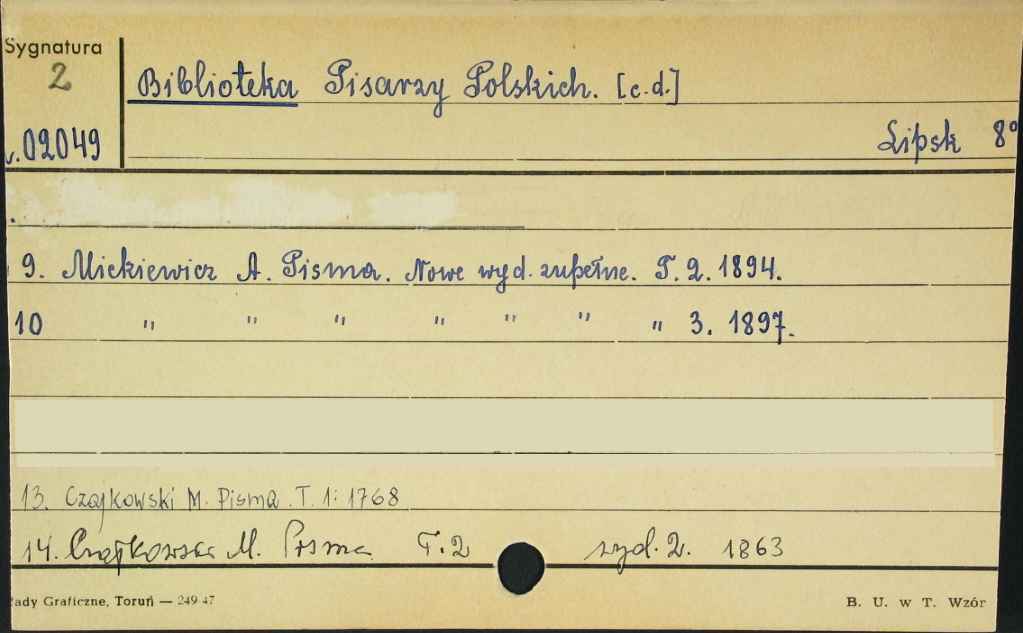 Sygnatura
2
Biblioteka Pisarzy Polskich. [c.d.]
02049
Lipsk 8°
9. Mickiewicz A. Pisma. Nowe wyd. zupełne. T. 2. 1894.
10 " " " " " " " 3. 1897.
13. Czajkowski M. Pisma. T. 1: 1768
14. Czajkowski M. Pisma T. 2 wyd. 2. 1863
ady Graficzne, Toruń — 249 47
B. U. w T. Wzór